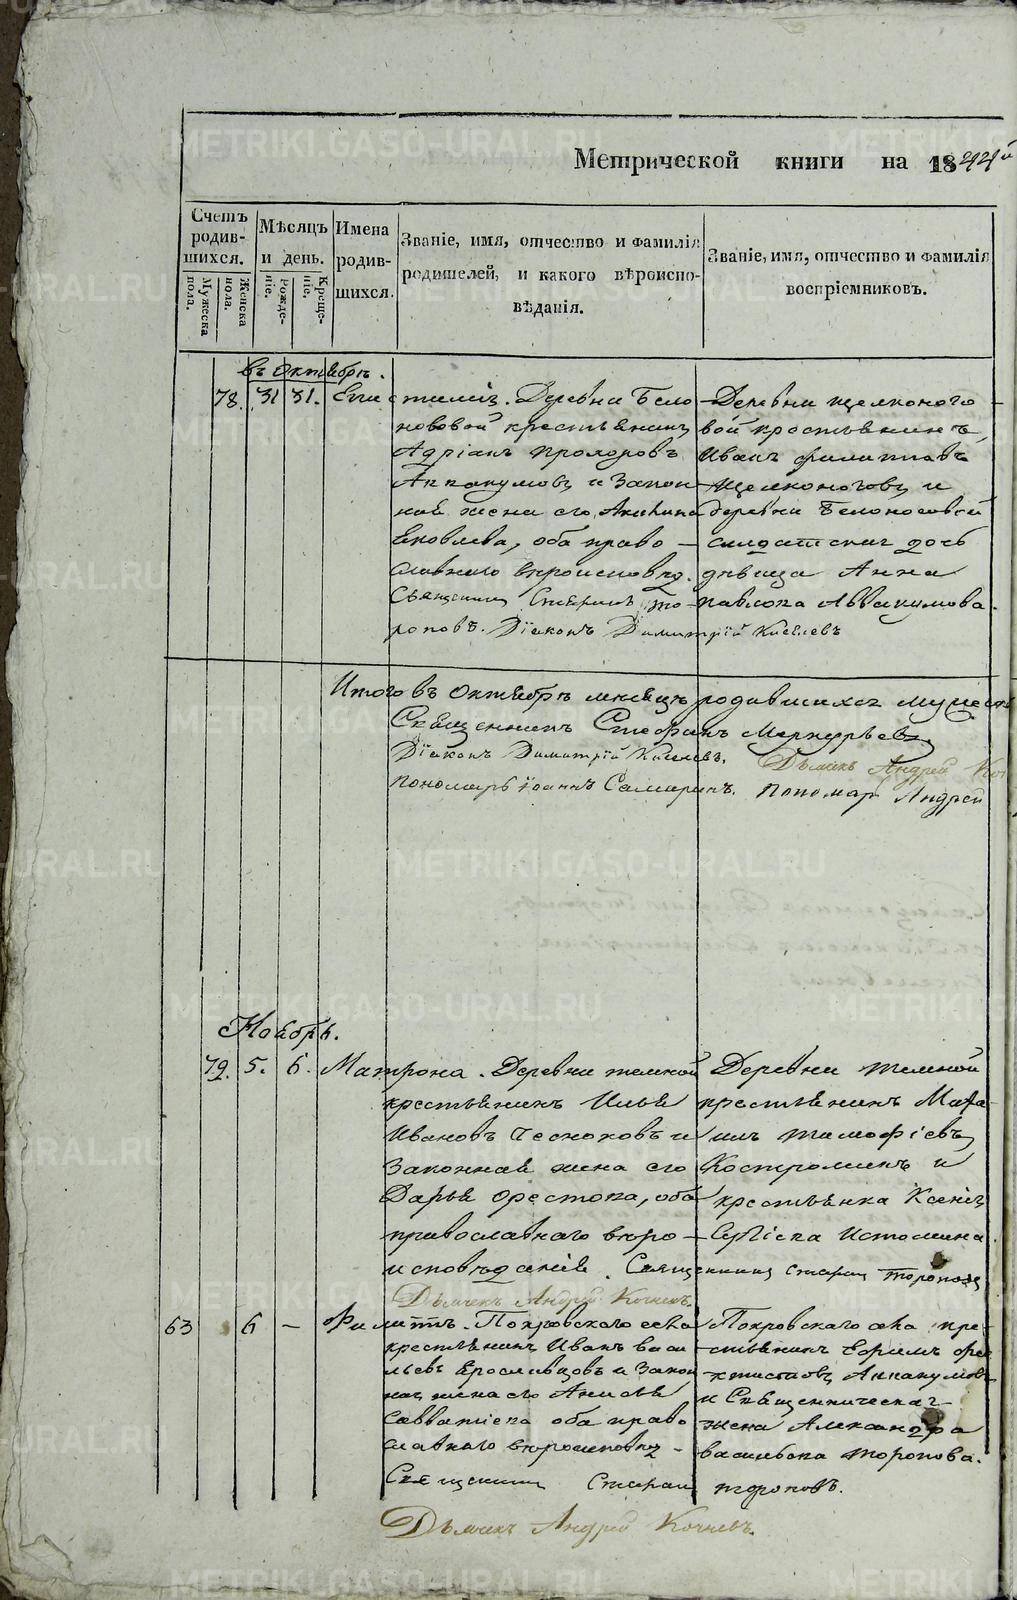 Метрической книги на 1844й
Счетъ родившихся.
Мужеска пола.
Женска пола.
Мѣсяцъ и день.
Рожденіе.
Крещеніе.
Имена родившихся.
Званіе, имя, отчество и фамилія родителей, и какого вѣроисповѣданія.
Званіе, имя, отчество и фамилія воспріемниковъ.
въ Октябрѣ.
78. 31 31. Епистимія. Деревни Бело
новой крестьянинъ
Адріанъ Прохоровъ
Аввакумовъ и закон
ная жена его Акилина
Яковлева, оба право
славнаго вѣроисповѣд.
Священникъ Стефанъ То-
роповъ. Діаконъ Димитрій Киселевъ
Деревни Щелконого
вой крестьянинъ
Иванъ Филипповъ
Щелконоговъ и
деревни Белоносовой
солдатская дочь
дѣвица Анна
Павлова Аввакумова.
Итого въ Октябрѣ месяцѣ родившихся мужеск
Священникъ Стефанъ Меркурьевъ
Діаконъ Димитрій Киселевъ. Дьячекъ Андрей Коч
Пономарь Іоаннъ Самаринъ. Пономар Андрей
Ноябрь.
79. 5. 6. Матрона. Деревни темной
крестьянинъ Илья
Ивановъ Чесноковъ и
Законная жена его
Дарья Орестова, оба
православнаго вѣро
исповѣданія. Священникъ Стефан Тороповъ
Дьячекъ Андрей Кочневъ.
Деревни Темной
крестьянинъ Миха-
илъ Тимофіевъ
Костроминъ и
крестьянка Ксенія
Сергіева Истомина.
63 6 – Филиппъ. Покровскаго села
крестьянинъ Иванъ Васи
льевъ Ярославцовъ и Закон
ная жена его Анисья
Савватіева оба право
славнаго вѣроисповед-
Священникъ Стефан Тороповъ.
Дьячекъ Андрей Кочневъ.
Покровскаго села кре-
стьянинъ Ефремъ Фео
ктистовъ Аввакумовъ
и Священническая
жена Александра
Васильева Торопова.